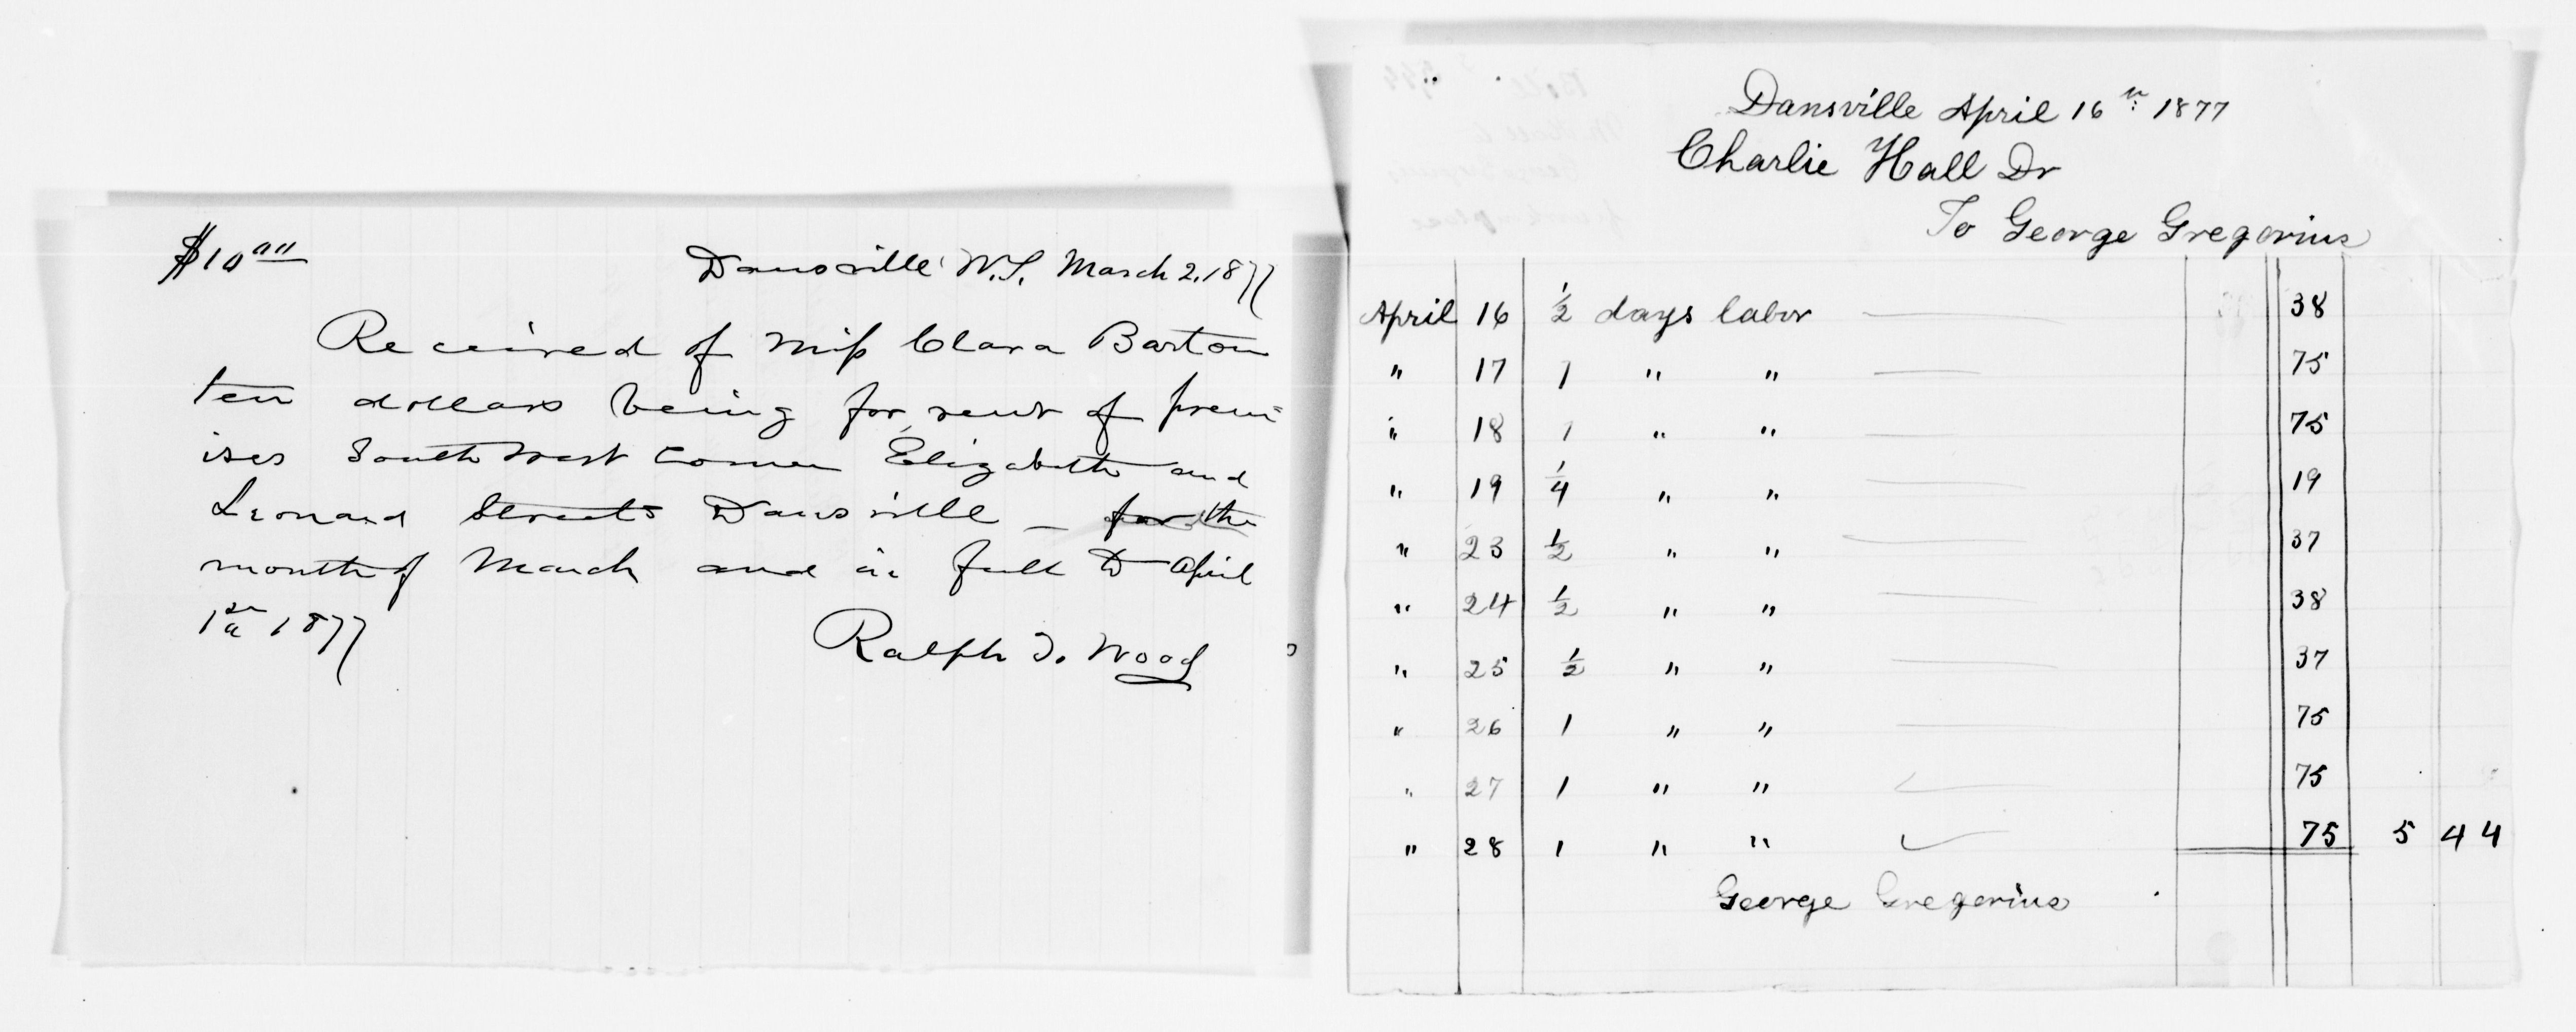 $10 00
Dansville N.Y. March 2, 1877
Received of Miss Clara Barton
ten dollars being for rent of prem-
ises South West Corner Elizabeth and
Leonard Streets Dansville – for the
month of March and in full to April
1st 1877
Ralph T. Wood
Dansville April 16th 1877
Charlie Hall Dr
To George Gregorius
April 16 ½ days labor — 38
" 17 1 " " — 75
" 18 1 " " — 75
" 19 ¼ " " — 19
" 23 ½ " " — 37
" 24 ½ " " — 38
" 25 ½ " " — 37
" 26 1 " " — 75
" 27 1 " " — 75
" 28 1 " " — 75 5 44
George Gregorius